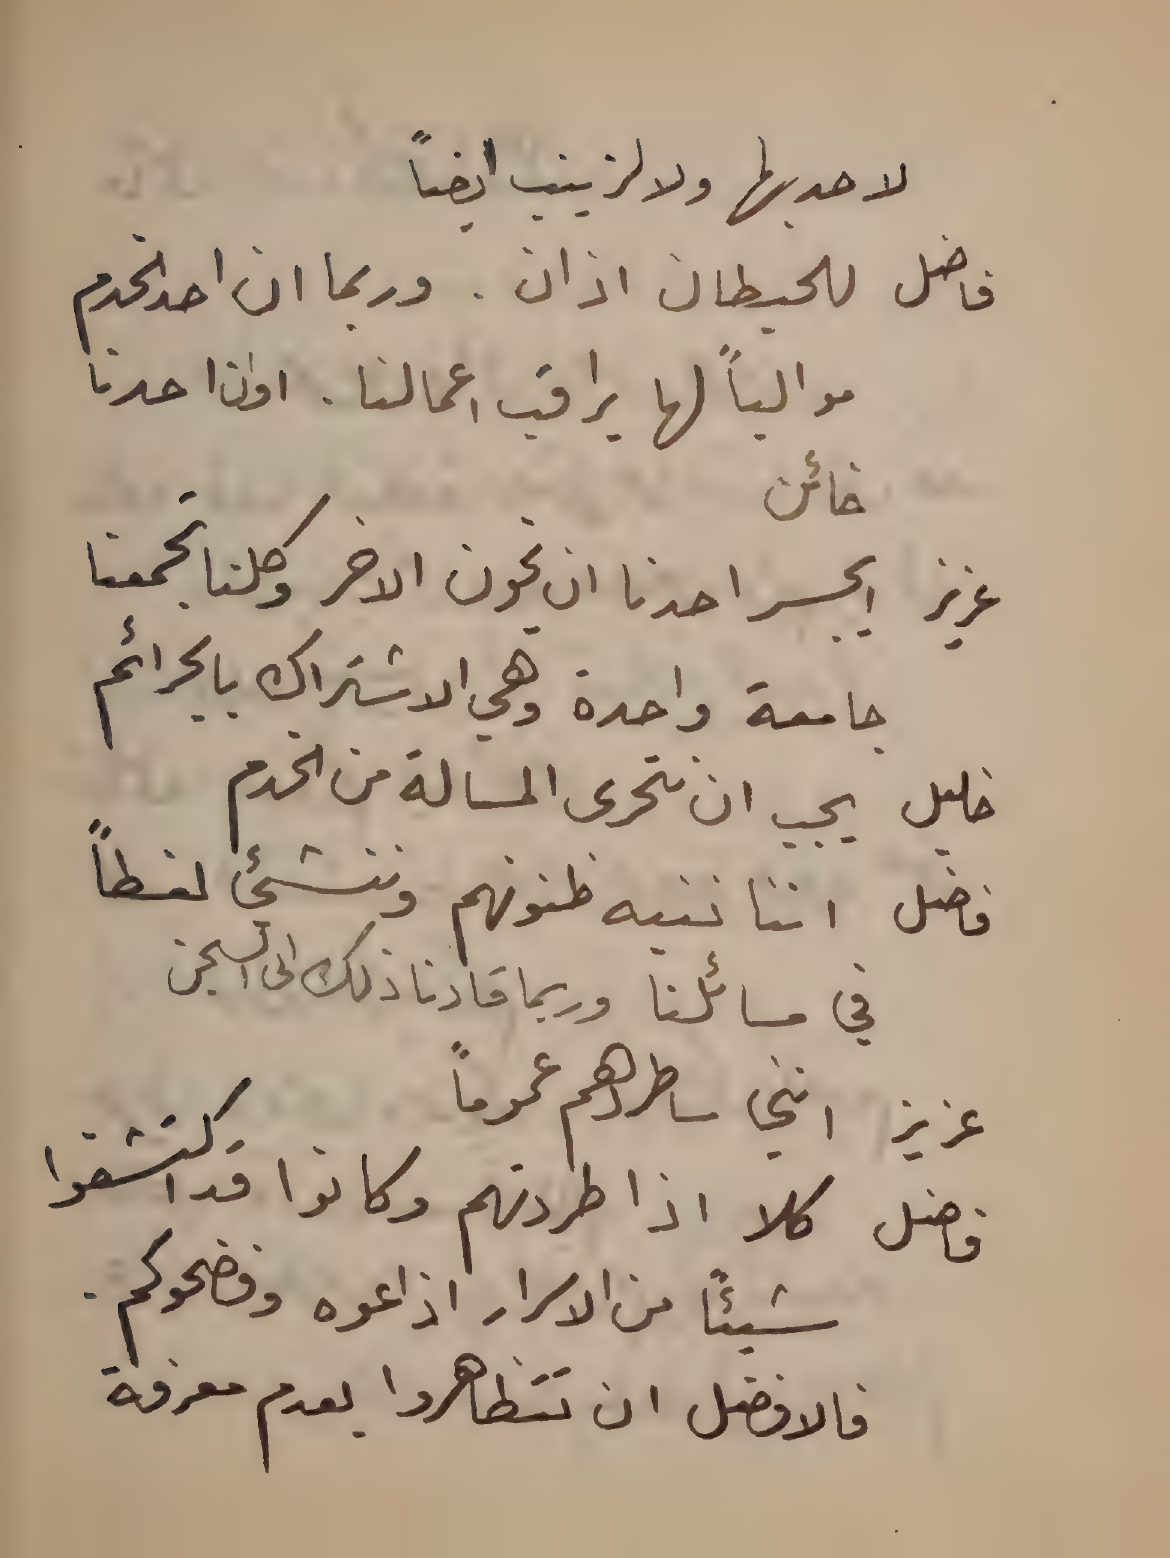 لاحد بها ولا لزينب ايضاً
فاضل للحيطان اذان . وربما ان احد الخدم
موالياً لها يراقب اعمالنا . او ان احدنا
خائن
عزيز ايجسر احدنا ان يخون الاخر وكلنا تجمعنا
جامعة واحدة وهي الاشتراك بالجرائم
خليل يجب ان نتحرى المسالة من الخدم
فاضل اننا ننبه ظنونهم وننشئ لغطاً
في مسائلنا وربما قادنا ذلك الى السجن
عزيز انني ساطردهم عموماً
فاضل كلا اذا طردتهم وكانوا قد اكتشفوا
شيئاً من الاسرار اذاعوه وفضحوكم .
فالافضل ان تتظاهروا بعدم معرفة